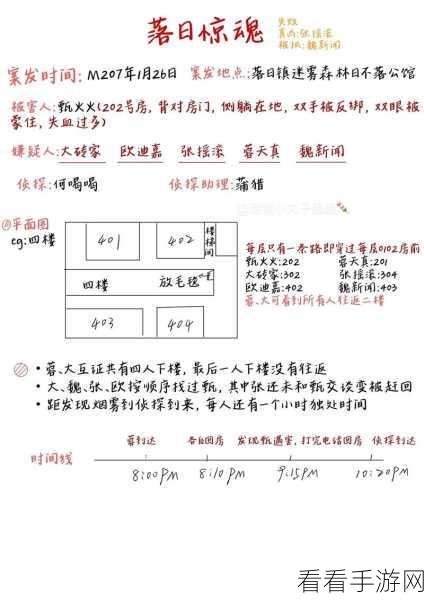 落日惊魂
失败
真凶:张摇滚
被抓:魏新闻
案发时间: M207年1月26日 案发地点: 落日镇迷雾森林日不落公馆
被害人: 甄火火(202号房, 背对房门, 侧躺在地, 双手被反绑, 双眼被
蒙住, 失血过多)
嫌疑人: 大砖家 欧迪嘉 张摇滚 蓉天真 魏新闻
侦探: 何喝喝 侦探助理: 蒲猎
平面图
eg: 四楼
401
402
楼梯间
四楼 放毛毯
403
404
每层只有一条路即穿过每层0102房前
甄火火:202 蓉天真:201
大砖家:302 张摇滚:304
欧迪嘉:402 魏新闻:403
蓉、大可看到所有人往返二楼
· 蓉、大互证共有四人下楼, 最后一人下楼没有往返
· 大、魏、张、欧按顺序找过甄, 其中张还未和甄交谈变被赶回
· 距发现烟雾到侦探到来, 每人还有一个小时独处时间
时间线
蓉到达 各自回房 发现甄遇害, 打完电话回房 侦探到达
8:00PM 8:10PM 9:15PM 10:20PM
看看手游网